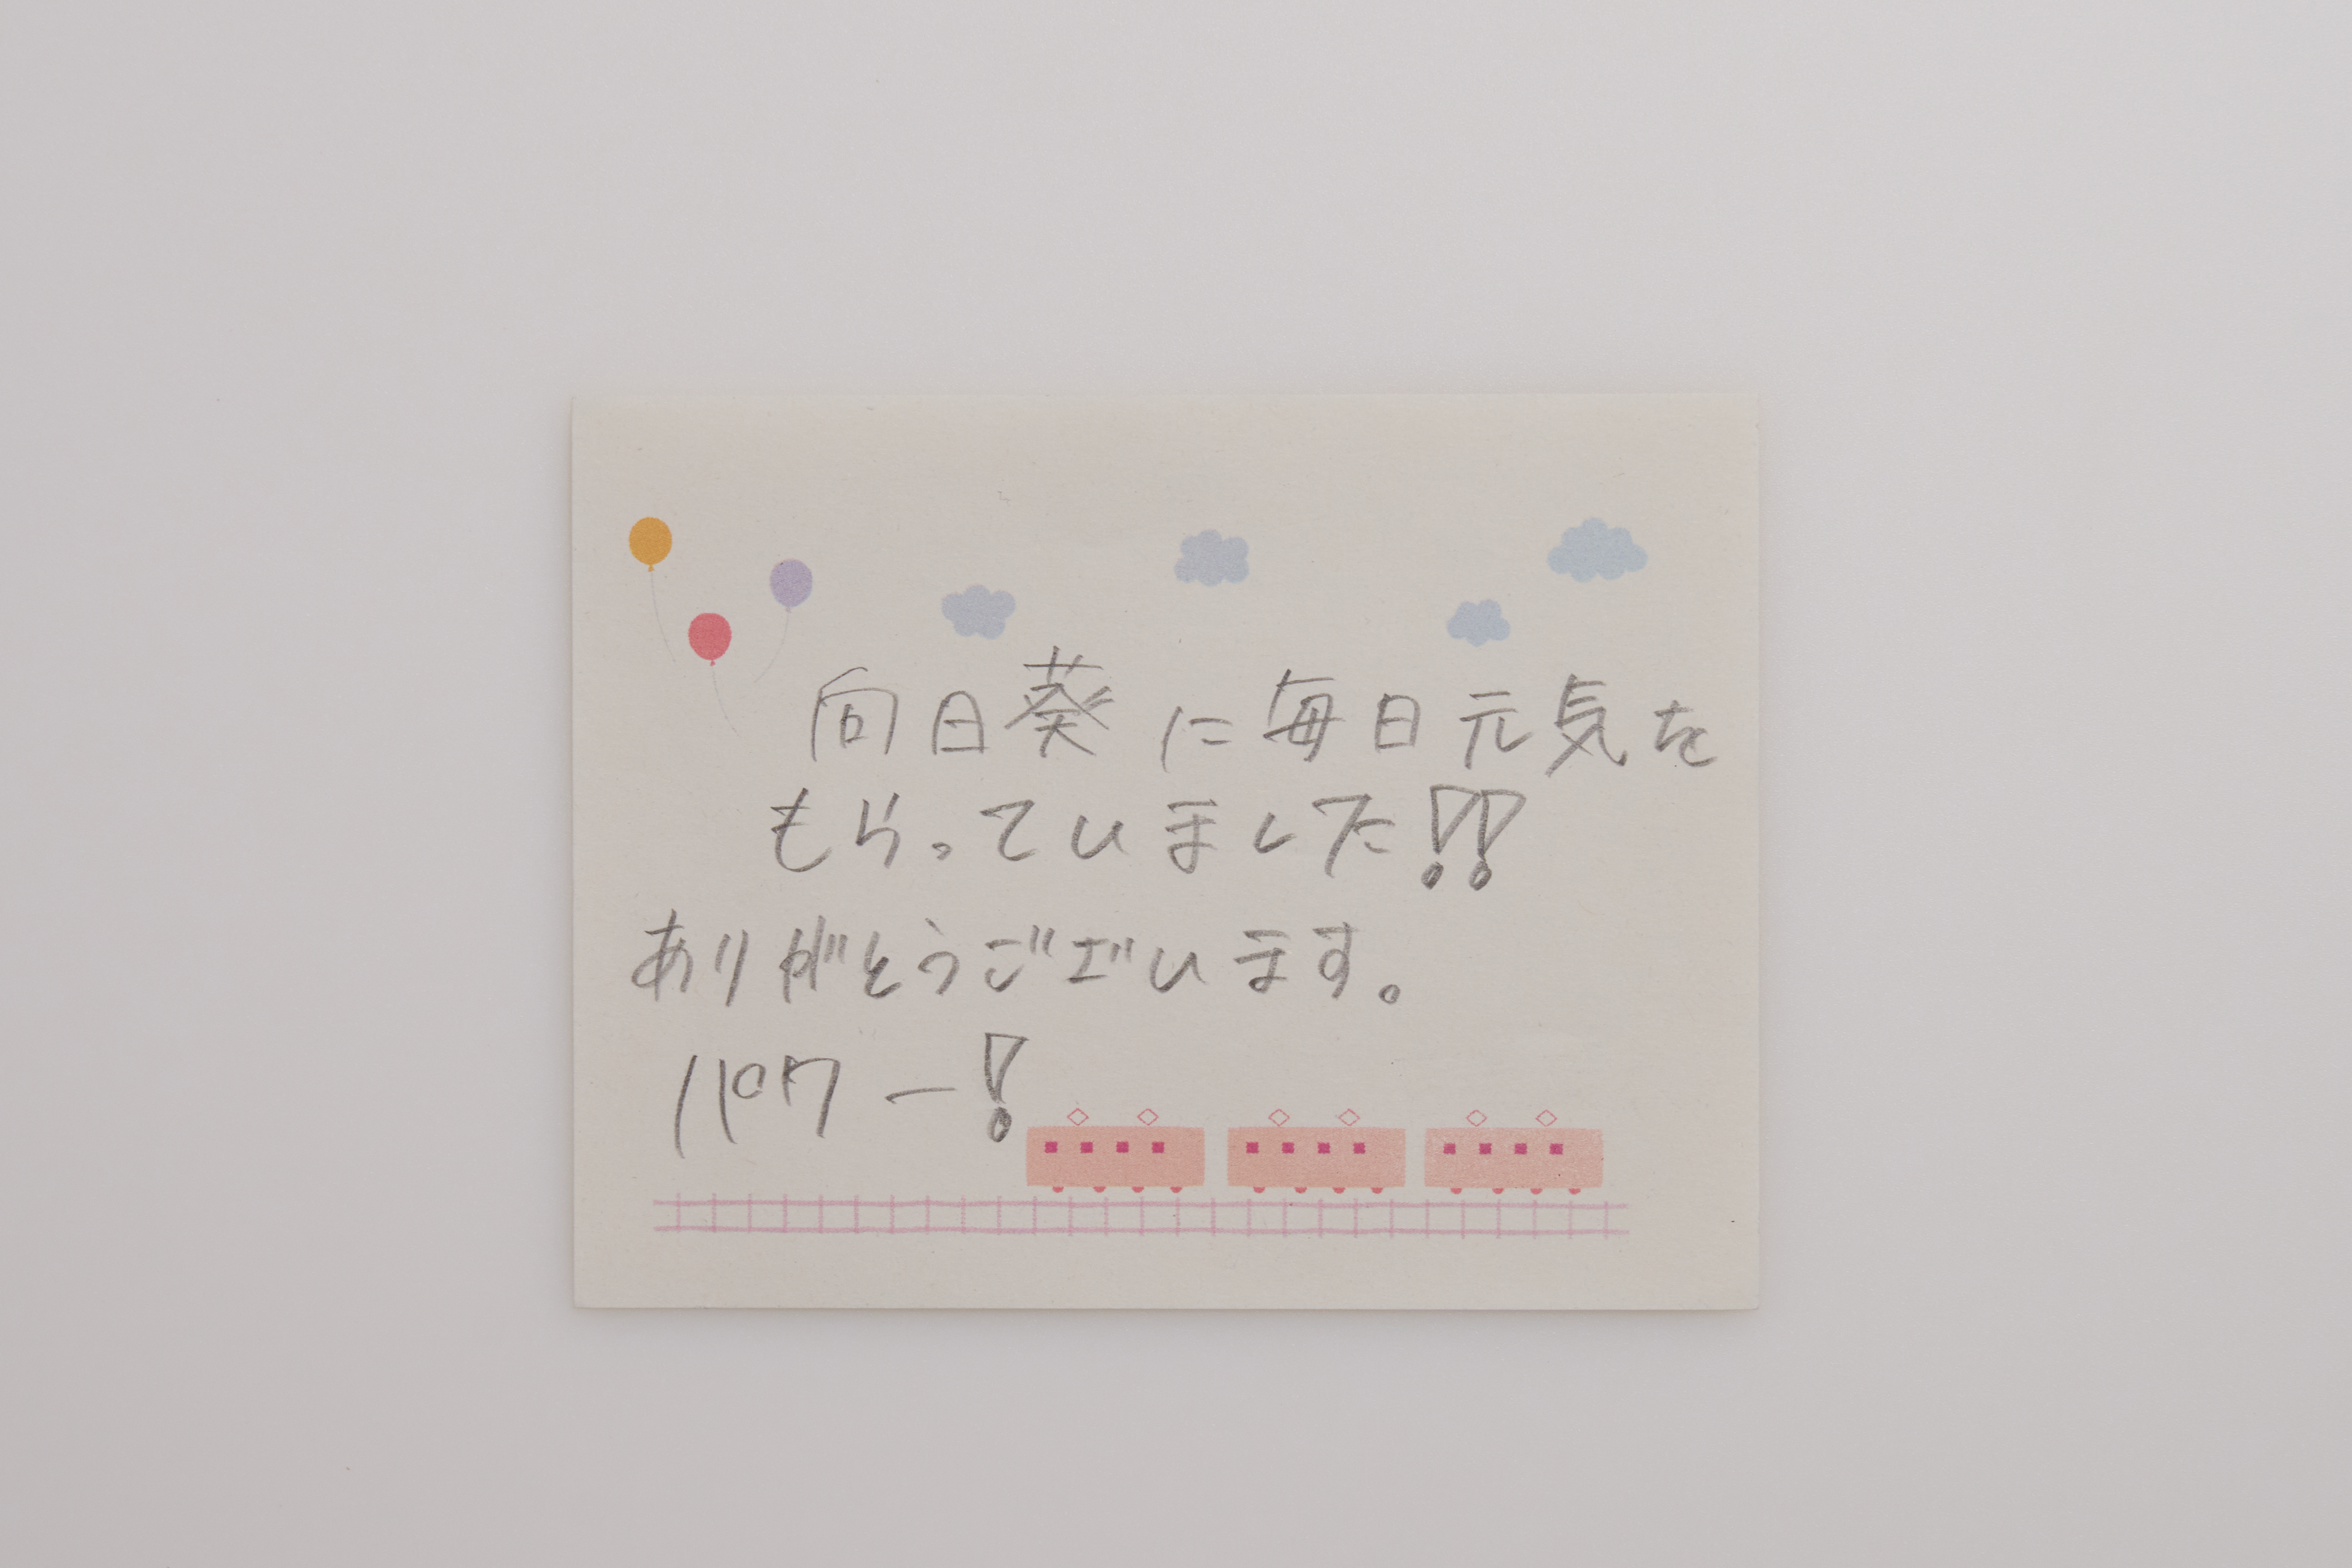 向日葵に毎日元気を
もらっていました!!
ありがとうございます。
パワー!